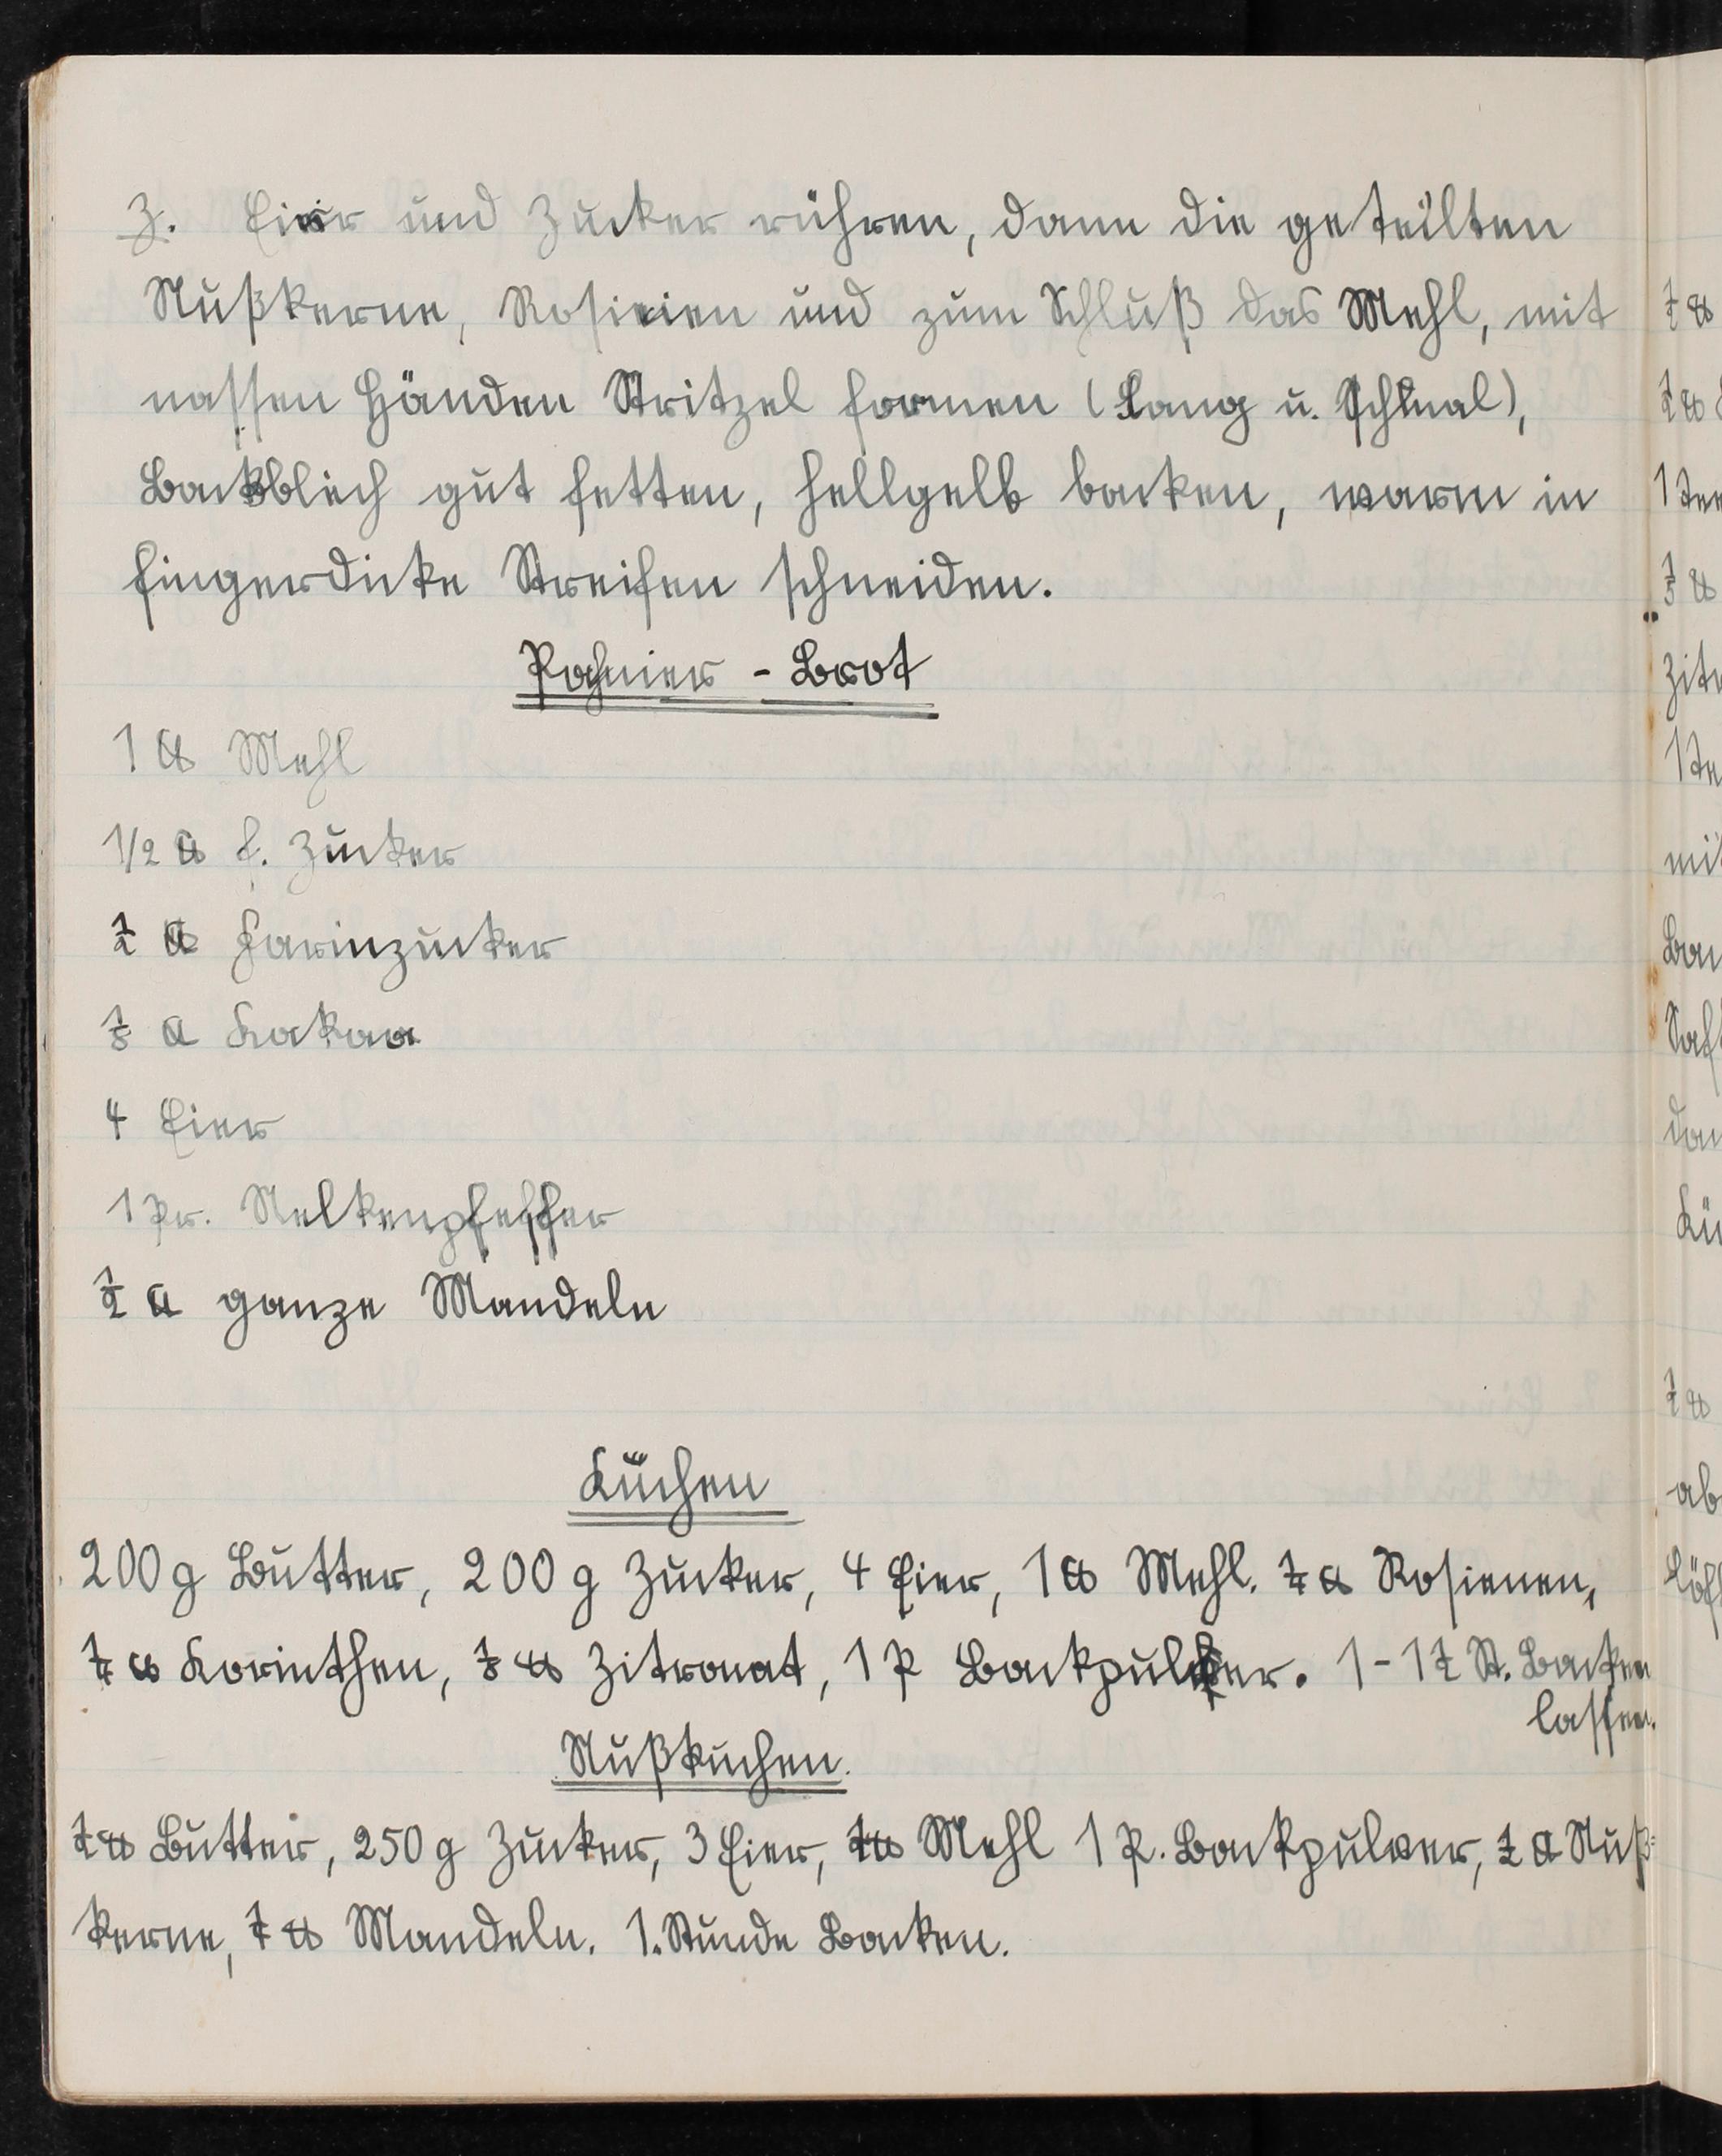 Z. Eier und Zucker rühren, dann die geteilten
Nußkerne, Rosinien und zum Schluß das Mehl, mit
nassen Händen Stritzel formen (Lang u. Schmal),
Backblech gut fetten, hellgelb backen, warm in
fingerdicke Streifen schneiden.
- Brot
1 ℔ Mehl
1/2 ℔ f. Zucker
½ ℔ Farinzucker
⅛ ℔ Kakao
4 Eier
1 Pr. Nelkenpfeffer
½ ℔ ganze Mandeln
Kuchen
200 g Butter, 200 g Zucker, 4 Eier, 1 ℔ Mehl. ¼ ℔ Rosienen,
¼ ℔ Korinthen, ⅛ ℔ Zitronat, 1 P Backpulver. 1-1½ St. Backen
lassen.
Nußkuchen.
½ ℔ Butter, 250 g Zucker, 3 Eier, ℔ Mehl 1 P. Backpulver, ½ ℔ Nuß=
kerne, ℔ Mandeln. 1. Stunde Backen.
½ ℔
½ ℔
⅛ ℔
mit
½ ℔
ab